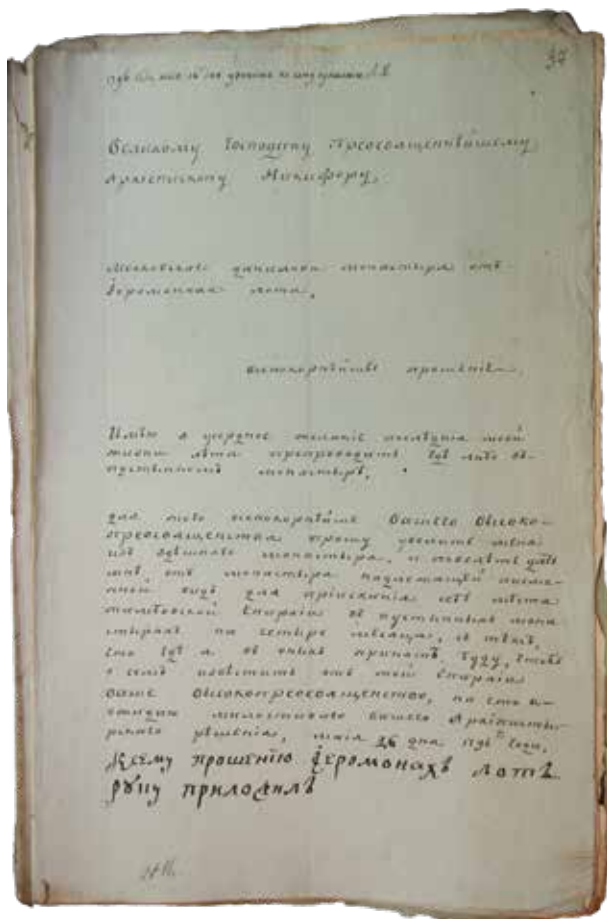 37
Великому Господину Преосвященнѣйшему
Архиепископу Никифору,
Московскаго данилова монастыря отъ
іеромонаха лота,
всепокорнѣйшее прошеніе.
Имѣя я усердное желаніе послѣднія моей
жизни лѣта препроводить гдѣ либо въ
пустынномъ монастырѣ,
для того всепокорнѣйше вашего высоко-
преосвященства прошу уволить меня
изъ здѣшняго монастыря, и повелѣть дать
мнѣ, отъ монастыря надлежащей писме-
нной видъ для пріисканія себѣ мѣста
тамбовской Епархіи въ пустынныхъ мона
стыряхъ на четыре месяца, съ тѣмъ,
что гдѣ я въ оныхъ принятъ буду, чтобъ
о семъ извѣстить отъ той Епархіи
ваше высокопреосвященство, на что и
ожидаю милостиваго вашего Архипасты-
рскаго рѣшенія, маія 26 дня года,
Ксему прошенію іеромонахъ лотъ
руку приложилъ